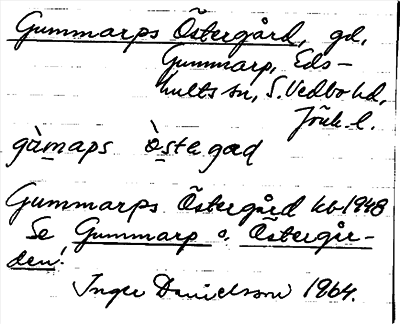 Gummarps Östergård, gd,
Gummarp, Eds-
hults sn, S. Vedbo hd,
Jönk. l.
gùmaps òstegæd
Gummarps Östergård kb 1948
Se Gummarp o. Östergår-
den!
Inger Danielsson 1964.